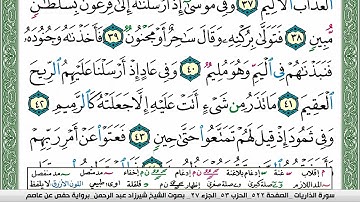 ٱلْعَذَابَ ٱلْأَلِيمَ ٣٧ وَفِى مُوسَىٰٓ إِذْ أَرْسَلْنَٰهُ إِلَىٰ فِرْعَوْنَ بِسُلْطَٰنٍ
مُّبِينٍ ٣٨ فَتَوَلَّىٰ بِرُكْنِهِۦ وَقَالَ سَٰحِرٌ أَوْ مَجْنُونٌ ٣٩ فَأَخَذْنَٰهُ وَجُنُودَهُۥ
فَنَبَذْنَٰهُمْ فِى ٱلْيَمِّ وَهُوَ مُلِيمٌ ٤٠ وَفِى عَادٍ إِذْ أَرْسَلْنَا عَلَيْهِمُ ٱلرِّيحَ
ٱلْعَقِيمَ ٤١ مَا تَذَرُ مِن شَىْءٍ أَتَتْ عَلَيْهِ إِلَّا جَعَلَتْهُ كَٱلرَّمِيمِ ٤٢
وَفِى ثَمُودَ إِذْ قِيلَ لَهُمْ تَمَتَّعُوا۟ حَتَّىٰ حِينٍ ٤٣ فَعَتَوْا۟ عَنْ أَمْرِ رَبِّهِمْ
سورة الذاريات الصفحة ٥٢٢ الحزب ٥٣ الجزء ٢٧ بصوت الشيخ شيرزاد عبد الرحمن برواية حفص عن عاصم